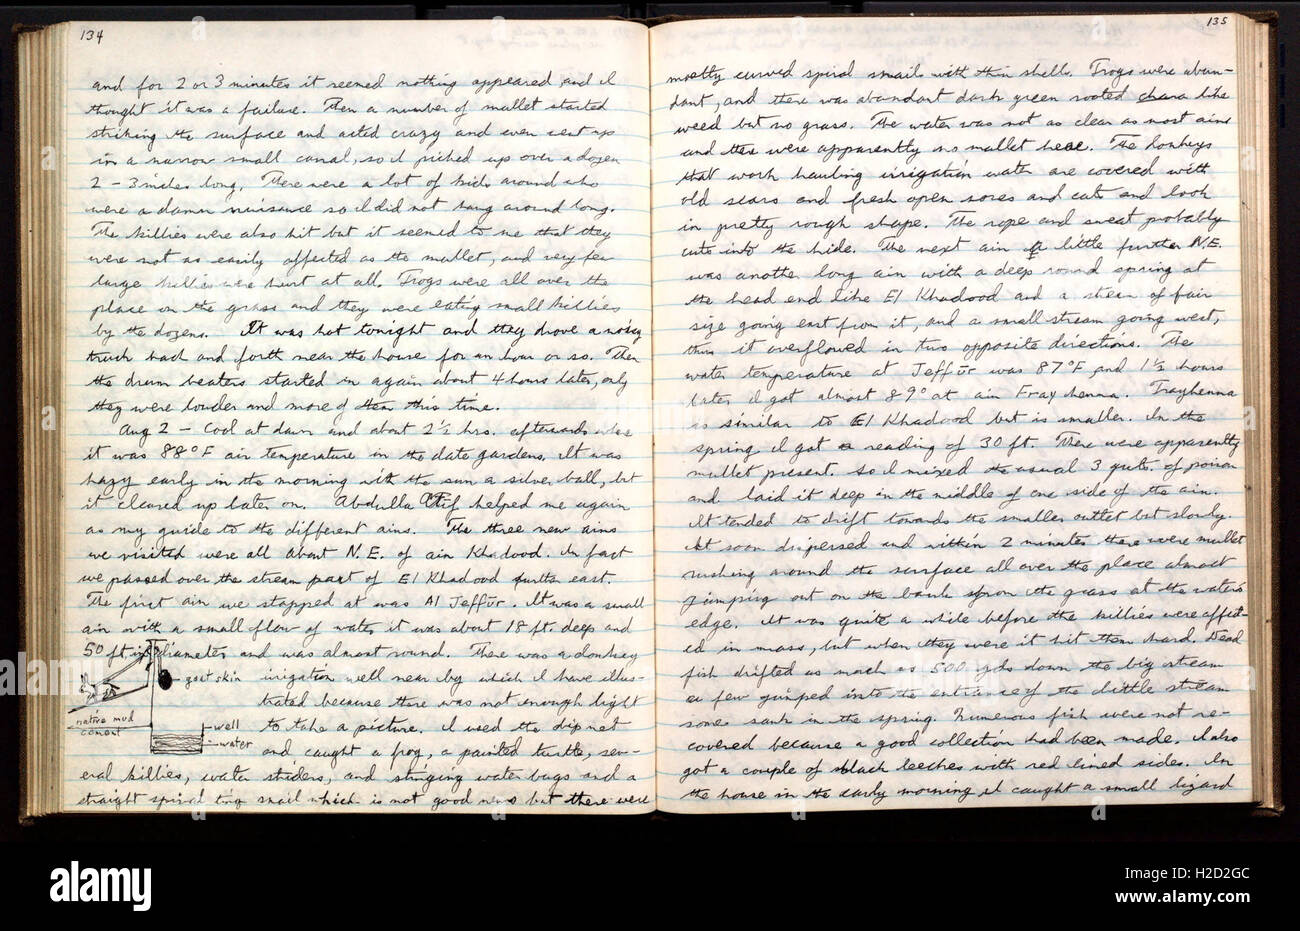 134
and for 2 or 3 minutes it seemed nothing appeared and I
thought it was a failure. Then a number of mullet started
striking the surface and acted crazy and even went up
in a narrow small canal, so I picked up over a dozen
2 - 3 inches long. There were a lot of kids around who
were a damn nuisance so I did not hang around long.
The killies were also hit but it seemed to me that they
were not as easily affected as the mullet, and very few
large killies were hurt at all. Frogs were all over the
place on the grass and they were eating small killies
by the dozens. It was hot tonight and they drove a noisy
truck back and forth near the house for an hour or so. Then
the drum beaters started in again about 4 hours later, only
they were louder and more of them this time.
Aug 2 - Cool at dawn and about 2½ hrs. afterwards
it was 88°F air temperature in the date gardens. It was
hazy early in the morning with the sun a silver ball, but
it cleared up later on. Abdulla Atif helped me again
as my guide to the different ains. The three new ains
we visited were all about N.E. of ain Khadood. In fact
we passed over the stream part of El Khadood further east.
The first ain we stopped at was Al Jeffūr. It was a small
ain with a small flow of water it was about 18 ft. deep and
50 ft in diameter and was almost round. There was a donkey
goat skin irrigation well near by which I have illus-
trated because there was not enough light
native mud
cement
well
water
to take a picture. I used the dip net
and caught a frog, a painted turtle, sev-
eral killies, water striders, and stinging water bugs and a
straight spiral snail which is not good news but there were
135
mostly curved spiral snails with thin shells. Frogs were abun-
dant, and there was abundant dark green rooted chara like
weed but no grass. The water was not as clear as most ains
and there were apparently no mullet here. The donkeys
that work hauling irrigation water are covered with
old scars and fresh open sores and cuts and look
in pretty rough shape. The rope and sweat probably
cuts into the hide. The next ain a little further N.E.
was another long ain with a deep round spring at
the head end like El Khadood and a stream of fair
size going east from it, and a small stream going west,
thus it overflowed in two opposite directions. The
water temperature at Jeffūr was 87°F and 1½ hours
later I got almost 89° at ain Frayhenna. Frayhenna
is similar to El Khadood but is smaller. In the
spring I got a reading of 30 ft. There were apparently
mullet present. so I mixed the usual 3 qts. of poison
and laid it deep in the middle of one side of the ain.
It tended to drift towards the smaller outlet but slowly
it soon dispersed and within 2 minutes there were mullet
rushing around the surface all over the place almost
jumping out on the bank upon the grass at the water's
edge. It was quite a while before the killies were affect-
ed in mass, but when they were it hit them hard. Dead
fish drifted as much as 500 yds down the big stream
a few jumped into the entrance of the little stream
some sank in the spring. Numerous fish were not re-
covered because a good collection had been made. I also
got a couple of black leeches with red lined sides. In
the house in the early morning I caught a small lizard
alamy
H2D2GC
www.alamy.com